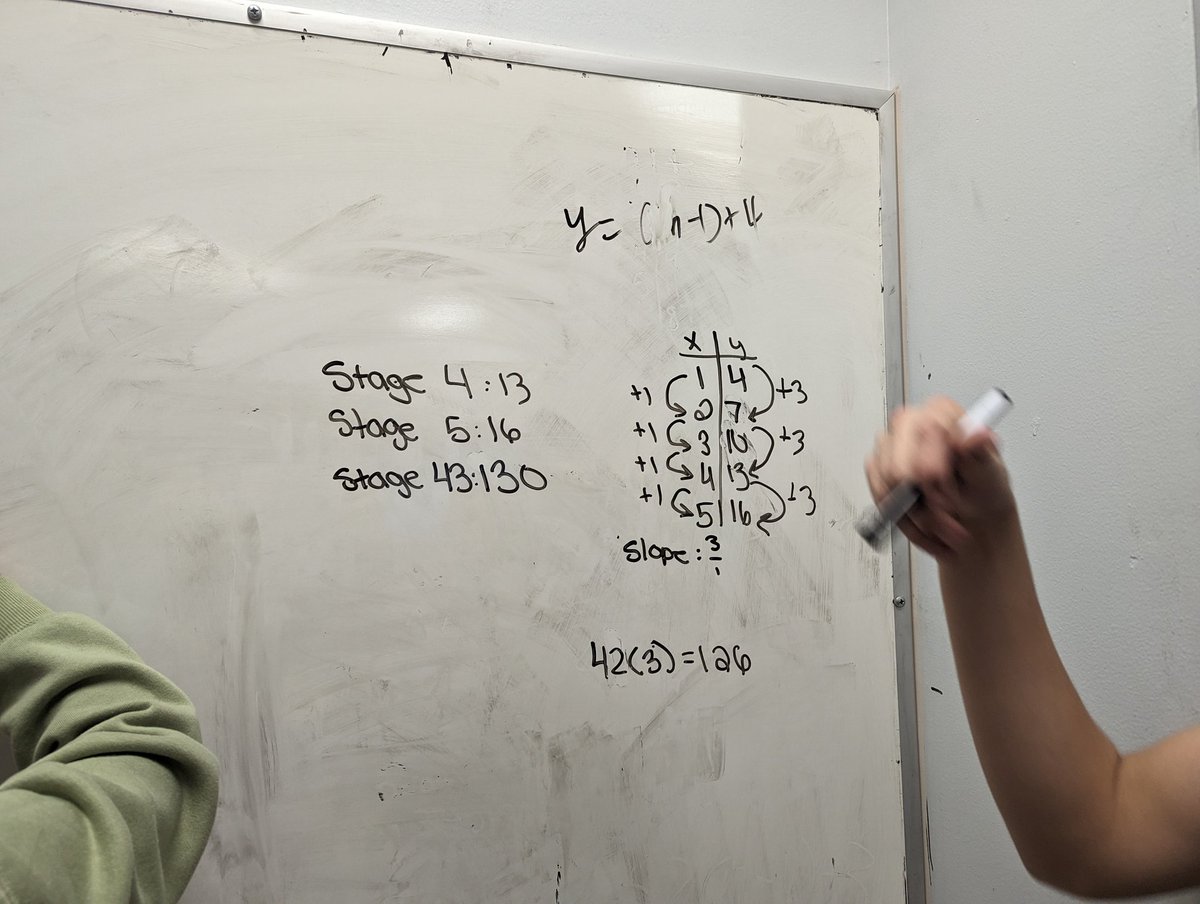 y= ( n-1)+4
Stage 4:13
Stage 5:16
Stage 43:130
x y
1 4
+1 +3
2 7
+1
3 10
+3
+1
4 13
+1 +3
5 16
Slope: 3/1
42(3)=126